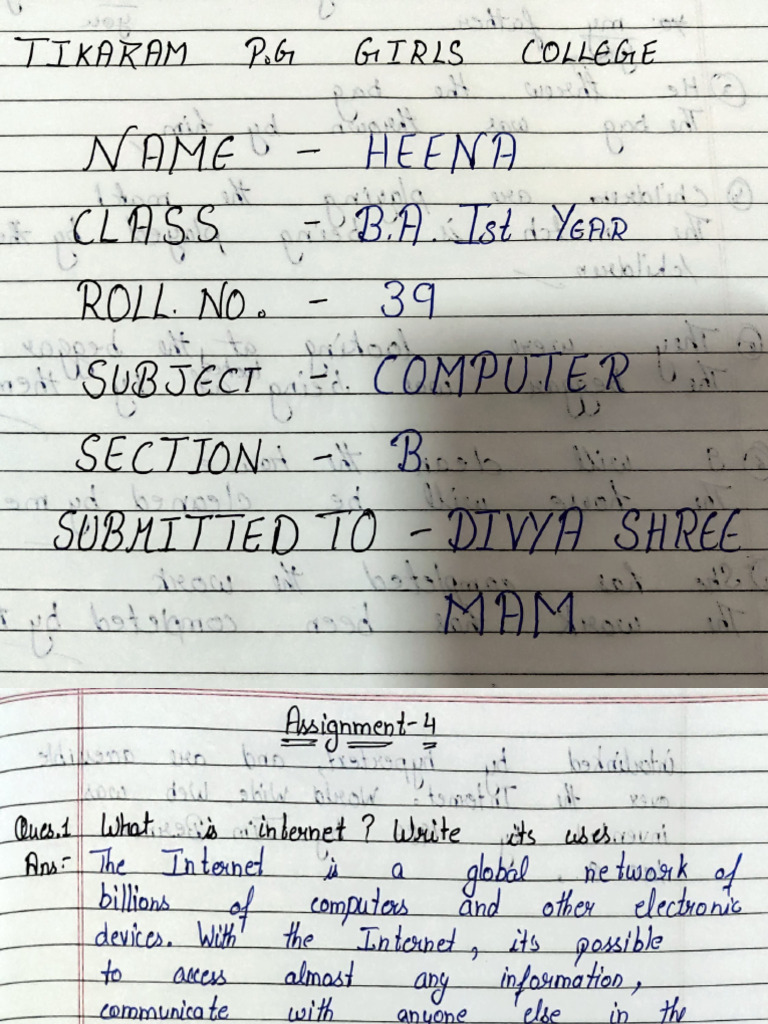 TIKARAM P.G GIRLS COLLEGE
NAME - HEENA
CLASS - B.A. Ist YEAR
ROLL. NO. - 39
SUBJECT - COMPUTER
SECTION - B.
SUBMITTED TO - DIVYA SHREE
MAM
Assignment-4
Ques.1 What is internet? Write its uses.
Ans:- The Internet is a global network of
billions of computers and other electronic
devices. With the Internet, its possible
to access almost any information,
communicate with anyone else in the